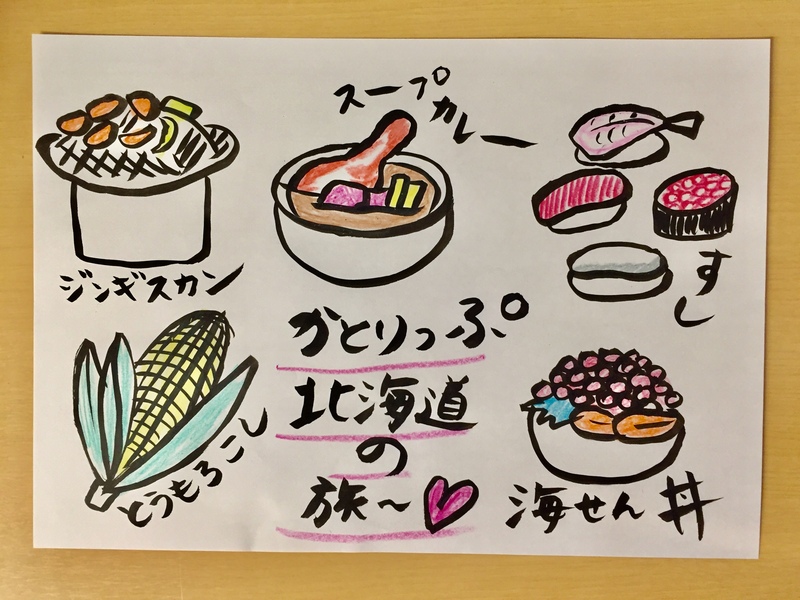 スープ
カレー
ジンギスカン
すし
かとりっぷ°
北海道
の
旅〜
とうもろこし
海せん丼